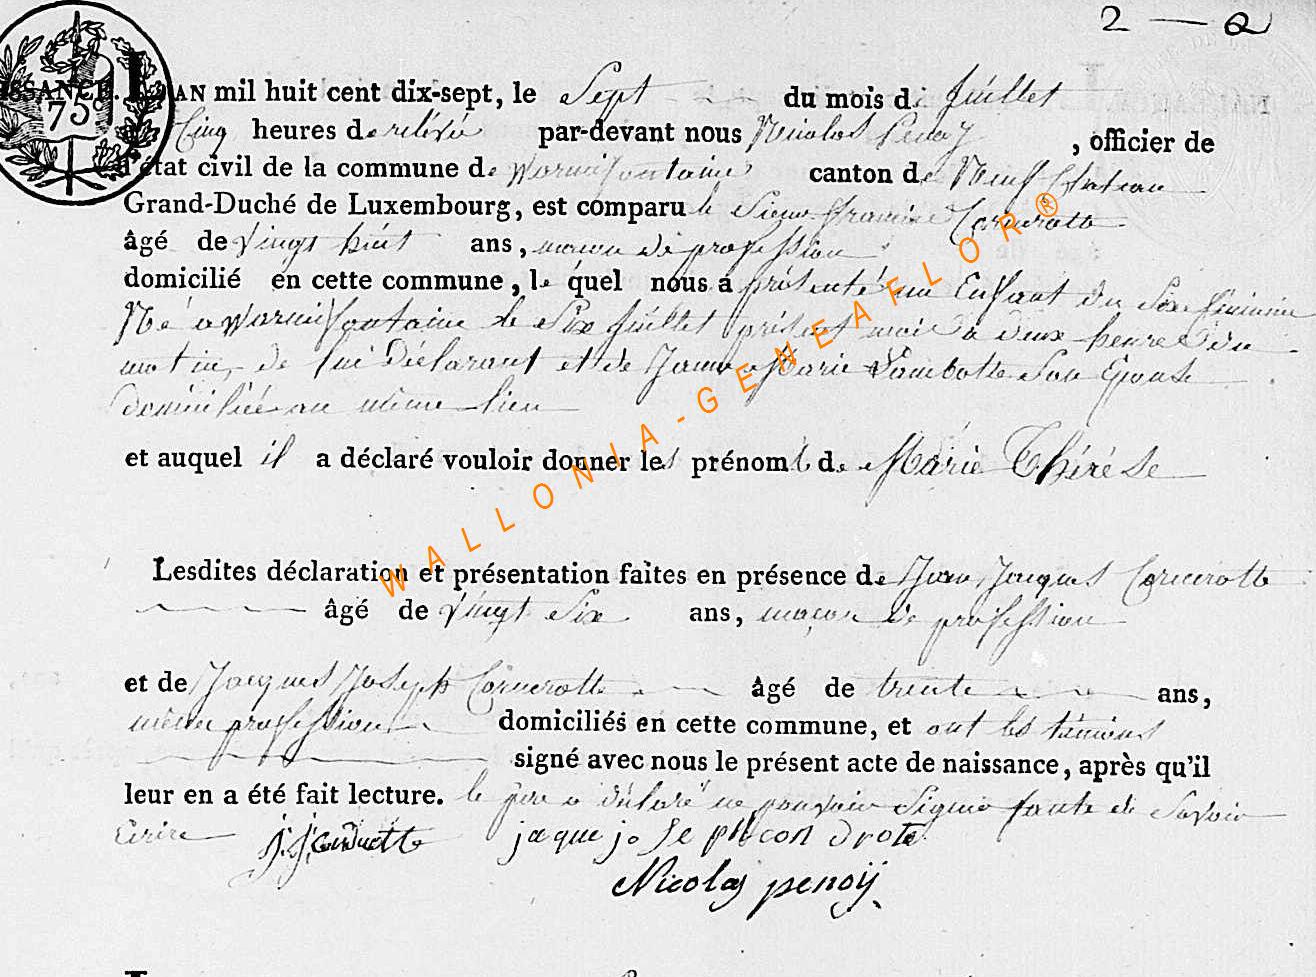 2 — 2
NAISSANCE. L'AN mil huit cent dix-sept, le Sept du mois de Juillet
75c
Cinq heures de relevée par-devant nous Nicolas Penoy, officier de
l'état civil de la commune de Warmifontaine canton de Neufchateau
Grand-Duché de Luxembourg, est comparu le Sieur Cornerotte
âgé de Vingt huit ans, maçon de profession
domicilié en cette commune, le quel nous a présenté un Enfant du Sexe feminin
Né a Warmifontaine le Six Juillet présent mois à deux heures du
matin, de lui Déclarant et de Jeanne Marie Lambotte Son Epouse
domiciliée au même lieu
et auquel il a déclaré vouloir donner les prénoms de Marie Thérése
Lesdites déclaration et présentation faites en présence de Jean Jacques Cornerotte
âgé de Vingt Six ans, maçon de profession
et de Jacques Joseph Cornerotte âgé de trente ans,
même profession domiciliés en cette commune, et ont les témoins
signé avec nous le présent acte de naissance, après qu'il
leur en a été fait lecture. le pere a déclaré ne pouvoir Signer faute de Savoir
Ecrire jaque jo Se ph
Nicolas penoÿ
WALLONIA-GENEAFLOR®